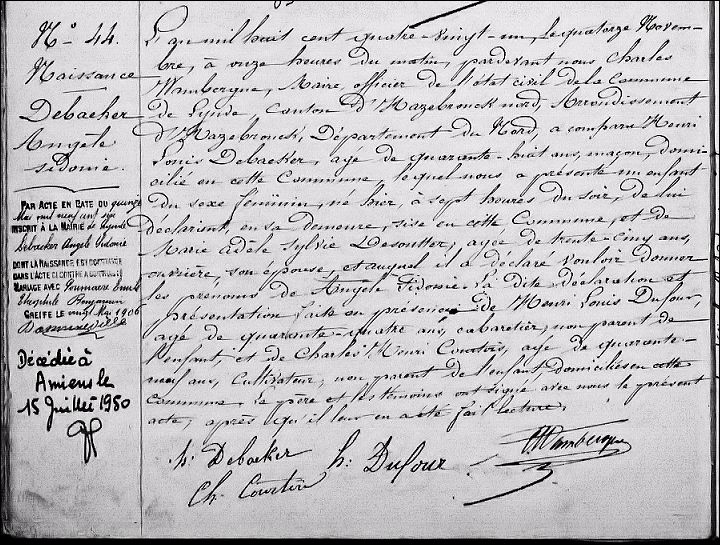 N.° 44.
Naissance
Debacker
Angèle
sidonie.
PAR ACTE EN DATE DU quinze
Mai mil neuf cent six
INSCRIT À LA MAIRIE de Lynde
Debacker Angèle Sidonie
DONT LA NAISSANCE EST CONSTATÉE
DANS L'ACTE CI-CONTRE A CONTRACTÉ
MARIAGE AVEC
Théophile Benjamin
GREFFE LE vingt Mai 1906
Décédée à
Amiens le
15 Juillet 1950
L'an mil huit cent quatre-vingt-un, le quatorze Novem-
bre, à onze heures du matin, pardevant nous Charles
Wambergue, Maire, officier de l'état civil de la Commune
de Lynde, canton d'Hazebrouck nord, Arrondissement
d'Hazebrouck, Département du Nord, a comparu Henri
Louis Debacker, age de quarante-huit ans, maçon, domi-
cilié en cette Commune, lequel nous a présenté un enfant
du sexe féminin, né hier, à sept heures du soir, de lui
déclarant, en sa demeure, sise en cette Commune, et de
Marie Adèle Sylvie Desoutter, agée de trente-cinq ans,
ouvrière, son épouse, et auquel il a déclaré vouloir donner
les prénoms de Angèle Sidonie. La dite déclaration et
présentation faite en présence de Henri Louis Dufour,
agé de quarante-quatre ans, cabaretier, non parent de
l'enfant, et de Charles Henri Courtois, age de quarante-
neuf ans, Cultivateur, non parent de l'enfant domiciliés en cette
Commune. Le père et les témoins ont signé avec nous le présent
acte, après qu'il leur en a été fait lecture.
h. Debacker h. Dufour Wambergue
Ch. Courtois